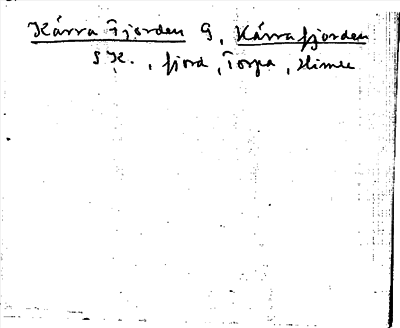 Kårra Fjorden G, Kårrafjorden
SK., fjord, Torpa, Himle